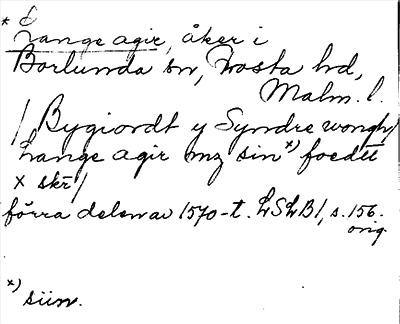 * Lange agir, åker i
Borlunda sn, Frosta hd,
Malm. l.
/ Bygiordt y Syndre wongh/
Lange agir mz sin *) foedtt
x skr /
förra delen av 1570-t. LSLB1, s. 156.
orig.
*) siin.